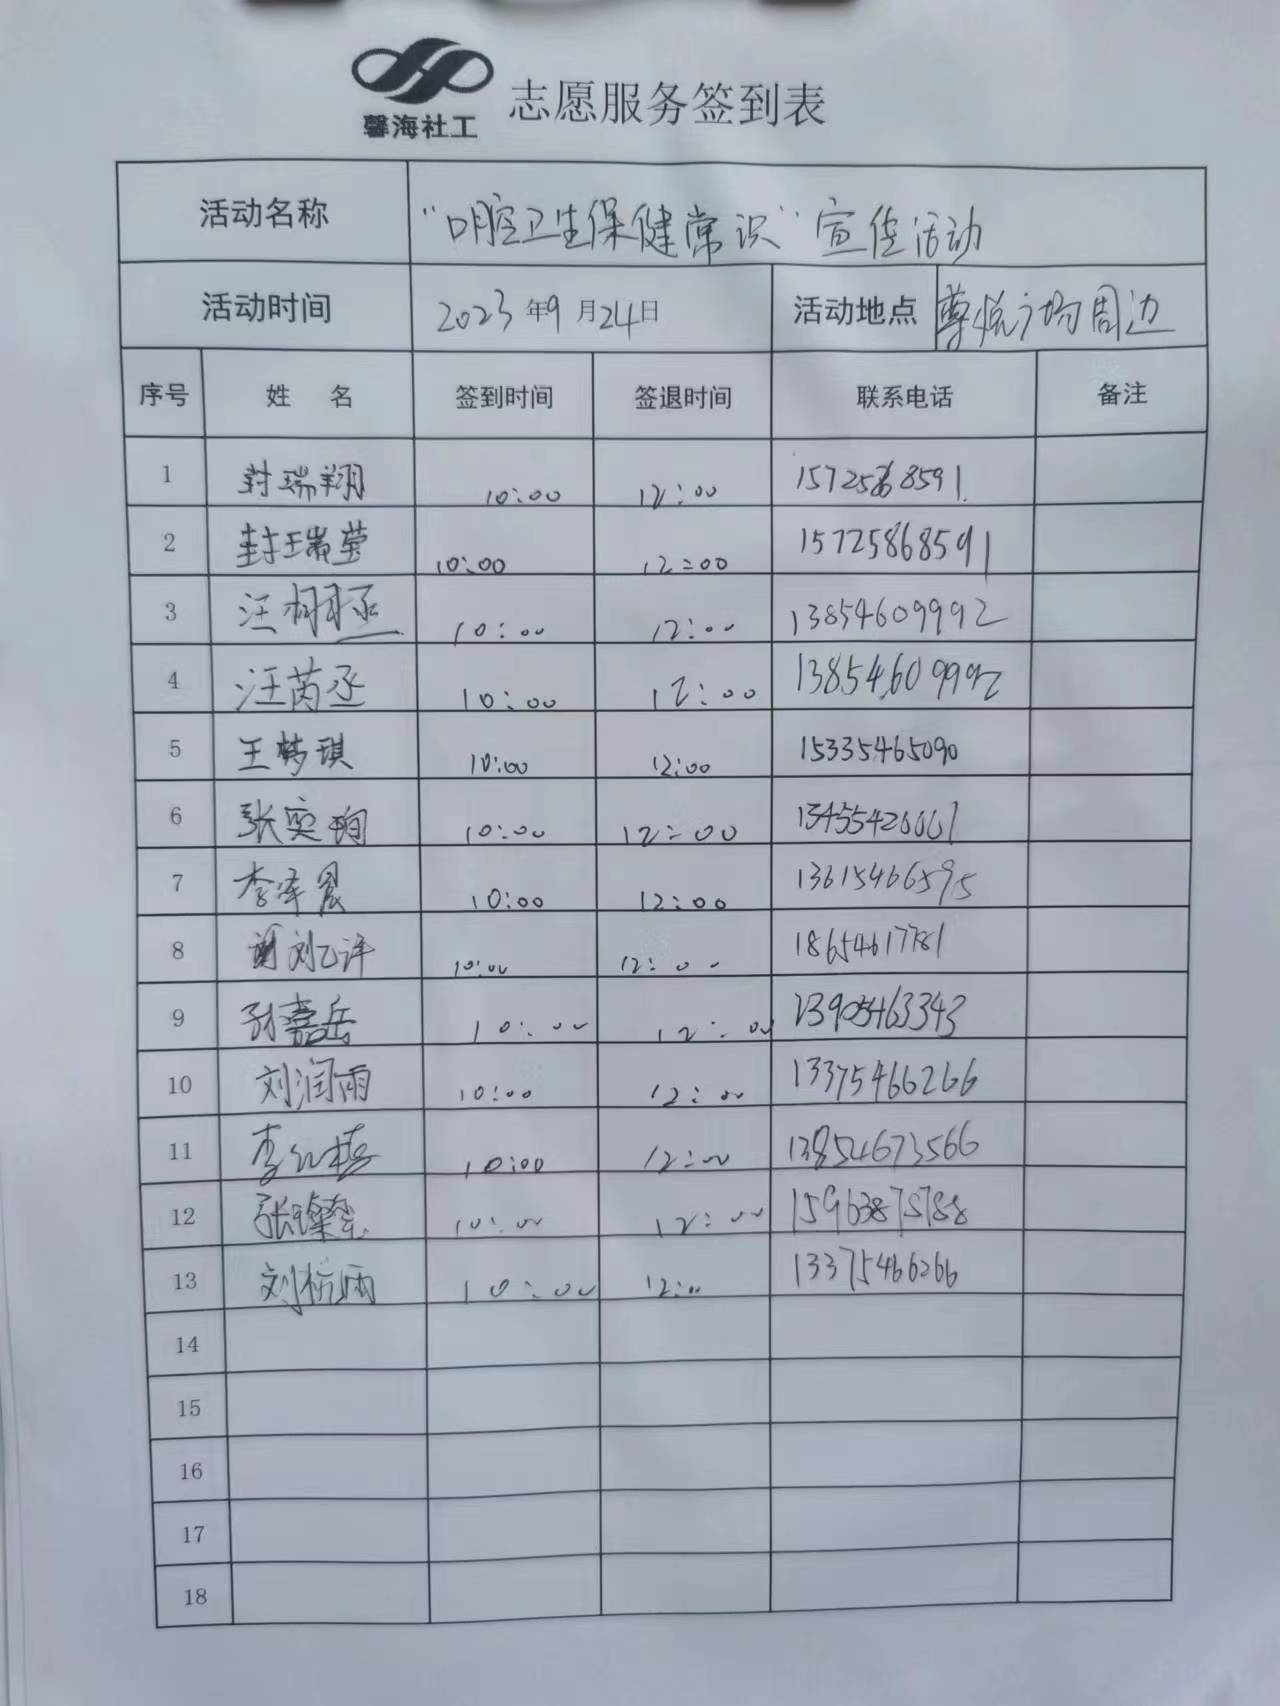 馨海社工
志愿服务签到表
活动名称 “口腔卫生保健常识”宣传活动
活动时间 2023年9月24日 活动地点 尊悦广场周边
序号 姓 名 签到时间 签退时间 联系电话 备注
1 封瑞翔 10:00 12:00 15725868591
2 封瑞莹 10:00 12:00 15725868591
3 汪栩丞 10:00 12:00 13854609992
4 汪芮丞 10:00 12:00 13854609992
5 王梦琪 10:00 12:00 15335465090
6 张奕珣 10:00 12:00
7 李泽晨 10:00 12:00 13615466595
8 刘乙评 10:00 12:00 18654617781
9 孙嘉岳 10:00 12:00 13905463343
10 刘润雨 10:00 12:00 13375466266
11 10:00 12:00 13854673566
12 10:00 12:00 15963875788
13 刘杭雨 10:00 12:00 13375466266
14
15
16
17
18